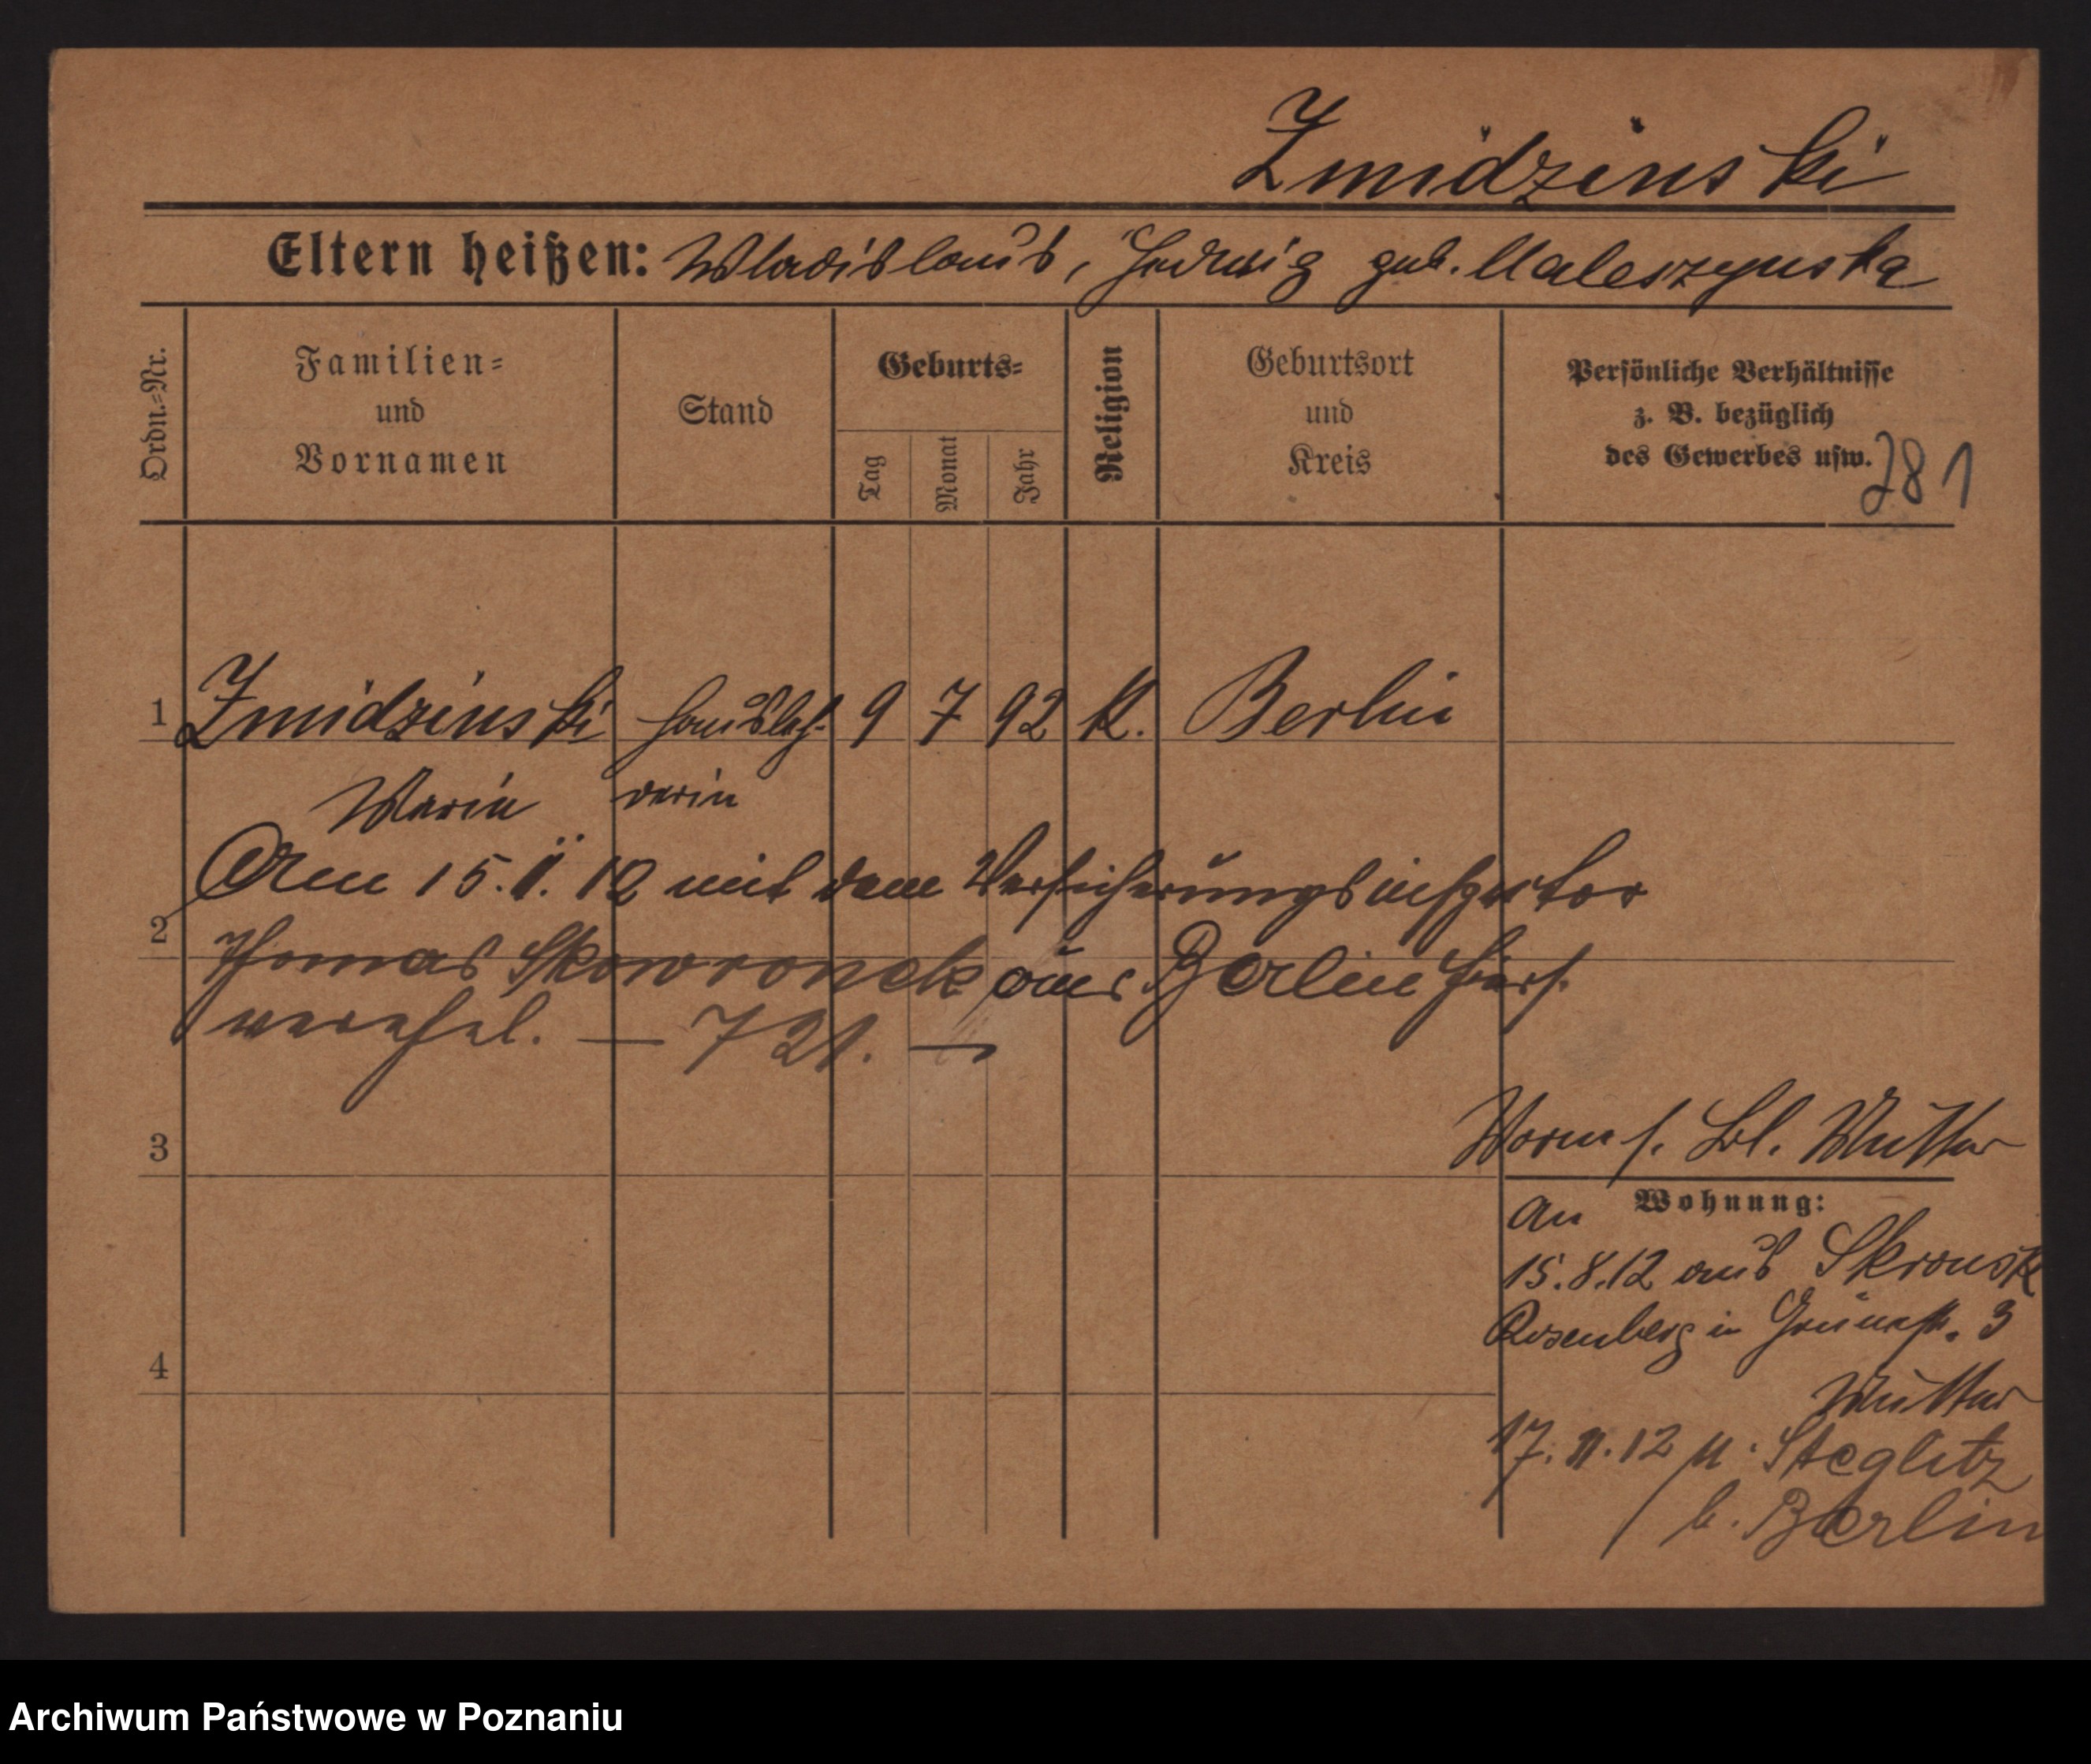 Zmidzinski
Eltern heißen: Wladislaus, Hedwig geb. Maleszynska
Ordn.=Nr.
Familien=
und
Vornamen
Stand
Geburts=
Tag
Monat
Jahr
Religion
Geburtsort
und
Kreis
Persönliche Verhältnisse
z. B. bezüglich
des Gewerbes usw.
281
1 Zmidzinski Hausleh- 9 7 92 K. Berlin
Maria rerin
Am 15. 12 mit dem Versicherungsinspektor
2
Thomas Skowronek aus Berlin hier
verehel. — 721. —
3
Vorm s. Bl. Mutter
Wohnung:
An
15.8.12 aus
Rosenberg in 3
Mutter
4
17.11.12 n. Steglitz
b. Berlin
Archiwum Państwowe w Poznaniu